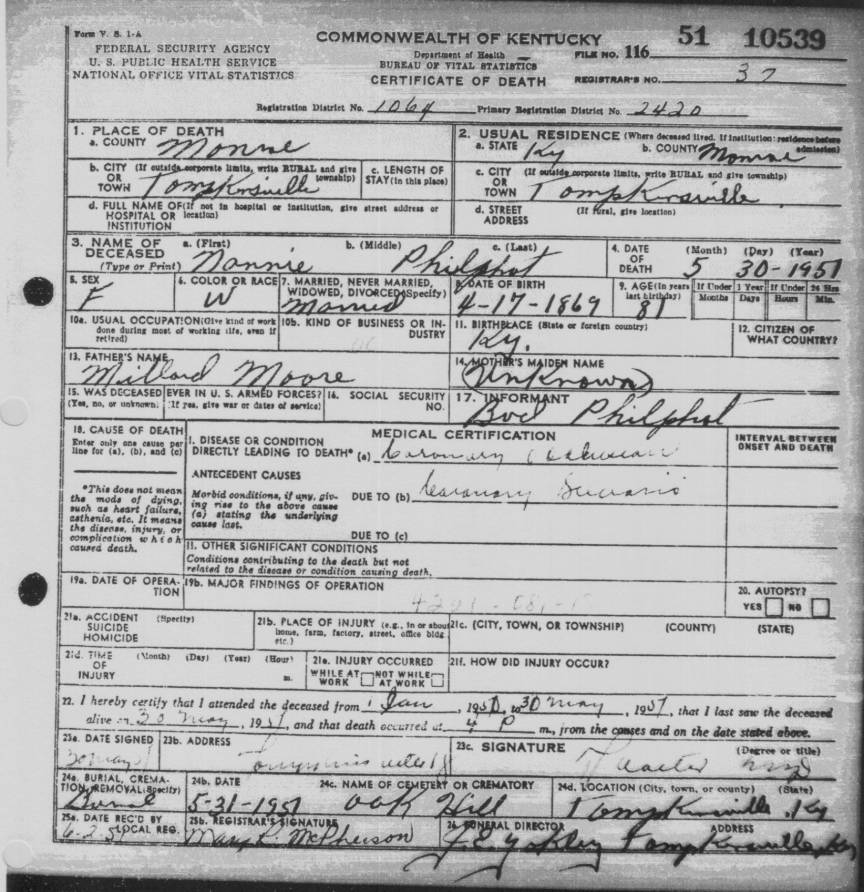 Form V. S. 1-A
FEDERAL SECURITY AGENCY
U. S. PUBLIC HEALTH SERVICE
NATIONAL OFFICE VITAL STATISTICS
COMMONWEALTH OF KENTUCKY
Department of Health
BUREAU OF VITAL STATISTICS
CERTIFICATE OF DEATH
FILE NO. 116 51 10539
REGISTRAR'S NO. 37
Registration District No. 1064 Primary Registration District No. 2420
1. PLACE OF DEATH
a. COUNTY Monroe
b. CITY (If outside corporate limits, write RURAL and give township)
OR TOWN Tompkinsville
c. LENGTH OF STAY (in this place)
d. FULL NAME OF (If not in hospital or institution, give street address or location)
HOSPITAL OR INSTITUTION
2. USUAL RESIDENCE (Where deceased lived. If institution: residence before admission)
a. STATE Ky b. COUNTY Monroe
c. CITY (If outside corporate limits, write RURAL and give township)
OR TOWN Tompkinsville
d. STREET ADDRESS (If rural, give location)
3. NAME OF DECEASED (Type or Print)
a. (First) b. (Middle) c. (Last)
Nannie Philphot
4. DATE OF DEATH (Month) (Day) (Year)
5 30-1951
5. SEX F
6. COLOR OR RACE W
7. MARRIED, NEVER MARRIED, WIDOWED, DIVORCED (Specify)
Married
8. DATE OF BIRTH
4-17-1869
9. AGE (In years last birthday) 81
If Under 1 Year Months Days
If Under 24 Hrs Hours Min.
10a. USUAL OCCUPATION (Give kind of work done during most of working life, even if retired)
10b. KIND OF BUSINESS OR INDUSTRY
11. BIRTHPLACE (State or foreign country)
Ky.
12. CITIZEN OF WHAT COUNTRY?
13. FATHER'S NAME
Millard Moore
14. MOTHER'S MAIDEN NAME
(Unknown)
15. WAS DECEASED EVER IN U. S. ARMED FORCES?
(Yes, no, or unknown) (If yes, give war or dates of service)
16. SOCIAL SECURITY NO.
17. INFORMANT
Philphot
18. CAUSE OF DEATH
Enter only one cause per line for (a), (b), and (c)
*This does not mean the mode of dying, such as heart failure, asthenia, etc. It means the disease, injury, or complication which caused death.
MEDICAL CERTIFICATION
INTERVAL BETWEEN ONSET AND DEATH
I. DISEASE OR CONDITION
DIRECTLY LEADING TO DEATH* (a) Coronary Occlusion
ANTECEDENT CAUSES
Morbid conditions, if any, giving rise to the above cause (a) stating the underlying cause last.
DUE TO (b) Coronary
DUE TO (c)
II. OTHER SIGNIFICANT CONDITIONS
Conditions contributing to the death but not related to the disease or condition causing death.
19a. DATE OF OPERATION
19b. MAJOR FINDINGS OF OPERATION
20. AUTOPSY?
YES NO
21a. ACCIDENT SUICIDE HOMICIDE (Specify)
21b. PLACE OF INJURY (e.g., in or about home, farm, factory, street, office bldg. etc.)
21c. (CITY, TOWN, OR TOWNSHIP) (COUNTY) (STATE)
21d. TIME OF INJURY (Month) (Day) (Year) (Hour) m.
21e. INJURY OCCURRED
WHILE AT WORK NOT WHILE AT WORK
21f. HOW DID INJURY OCCUR?
22. I hereby certify that I attended the deceased from 1 Jan, 1951, to 30 May, 1951, that I last saw the deceased
alive on 30 May, 1951, and that death occurred at 4 P m., from the causes and on the date stated above.
23a. DATE SIGNED 23b. ADDRESS 23c. SIGNATURE (Degree or title)
30 May
24a. BURIAL, CREMATION, REMOVAL (Specify)
Burial
24b. DATE
5-31-1951
24c. NAME OF CEMETERY OR CREMATORY
Oak Hill
24d. LOCATION (City, town, or county) (State)
Tompkinsville, Ky
25a. DATE REC'D BY LOCAL REG.
6-2-51
25b. REGISTRAR'S SIGNATURE
Mary L. McPherson
26. FUNERAL DIRECTOR ADDRESS
J. E. Yokley Tompkinsville, Ky